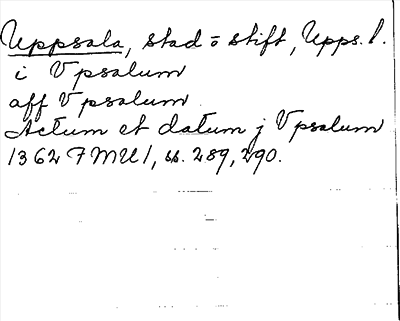 Uppsala, stad o stift, Upps. l.
i Vpsalum
aff Vpsalum
Actum et datum j Vpsalum
1362 FMU 1, ss. 289, 290.